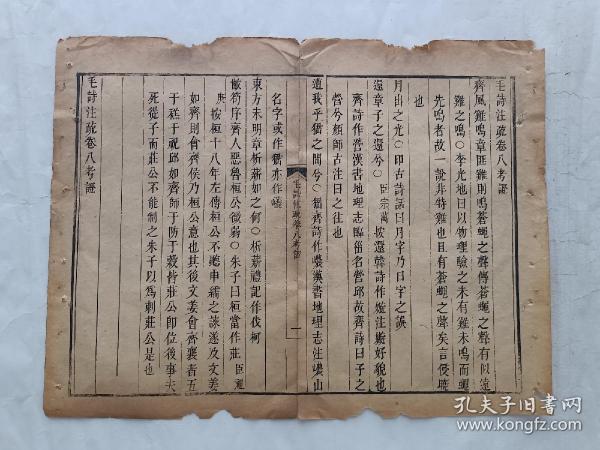 毛詩注疏卷八考證
齊風雞鳴章匪雞則鳴蒼蠅之聲傳蒼蠅之聲有似遠
雞之鳴○李光地曰以物理驗之未有雞未鳴而蠅
先鳴者故一說非特雞也且有蒼蠅之聲矣言侵曉
也
月出之光○卽古詩話曰月字乃日字之誤
還章子之還兮○臣宗萬按還韓詩作嫙注嫙好貌也
齊詩作營漢書地理志臨甾名營邱故齊詩曰子之
營兮顏師古注曰之往也
遭我乎峱之間兮○峱齊詩作嶩漢書地理志注嶩山
名字或作峱亦作巙
東方未明章析薪如之何○析薪禮記作伐柯
敝笱序齊人惡魯桓公微弱○朱子曰桓當作莊臣
按桓十八年左傳桓公不聽申繻之諫遂及文姜
如齊則會齊侯乃桓公意也其後文姜會齊襄者五
于禚于祝邱如齊師于防于穀皆莊公卽位後事夫
死從子而莊公不能制之朱子以爲刺莊公是也
毛詩注疏卷八考證
毛詩注疏卷八考證
一
孔夫子旧书网
www.kongfz.com